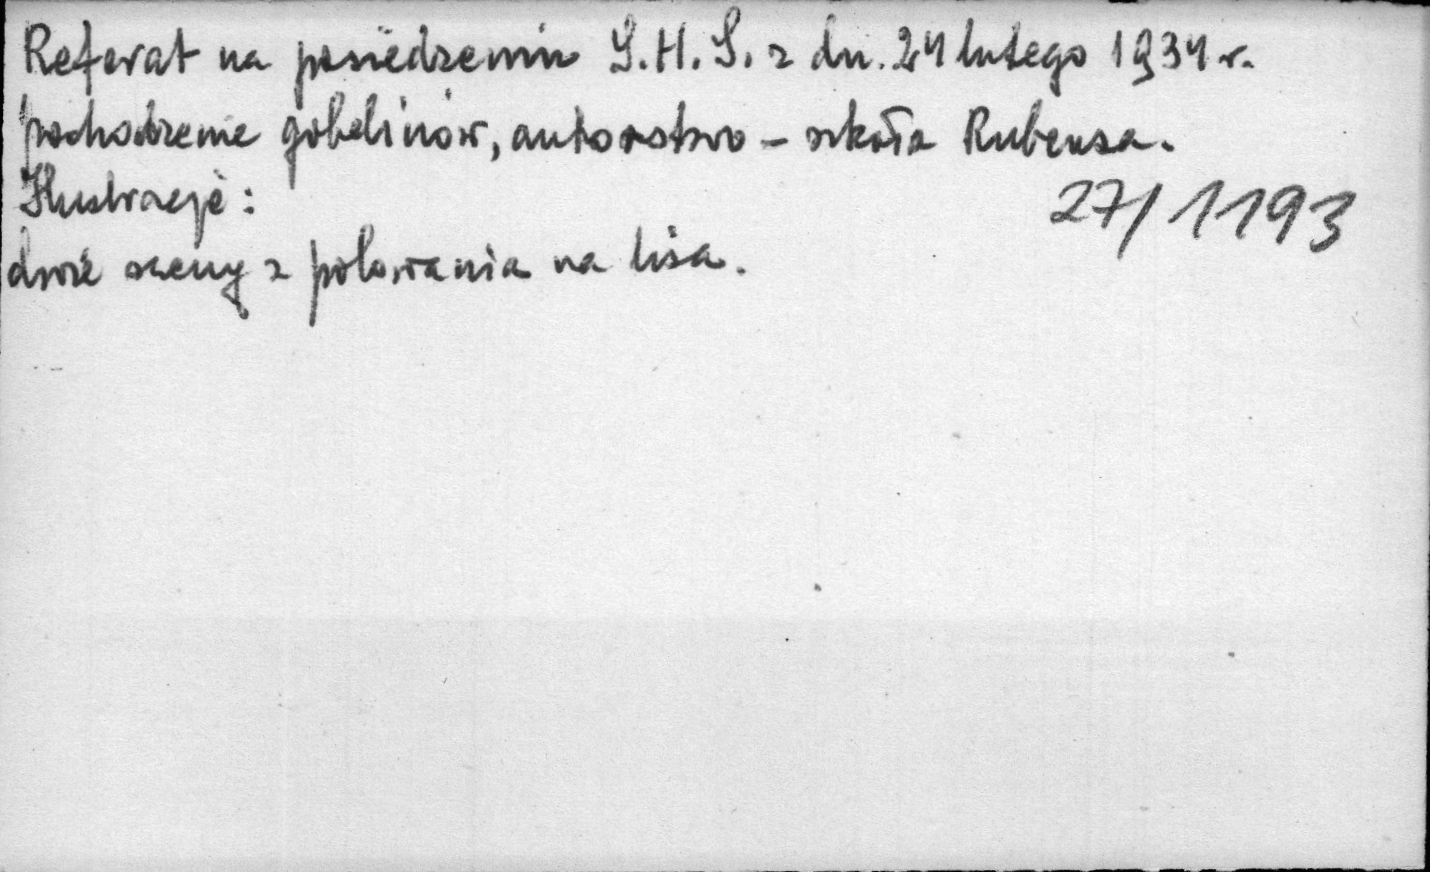 Referat na posiedzeniu S.H.S. z dn. 24 lutego 1934 r.
pochodzenie gobelinów, autorstwo - szkoła Rubensa.
Ilustracje:
27/1193
dwie sceny z polowania na lisa.